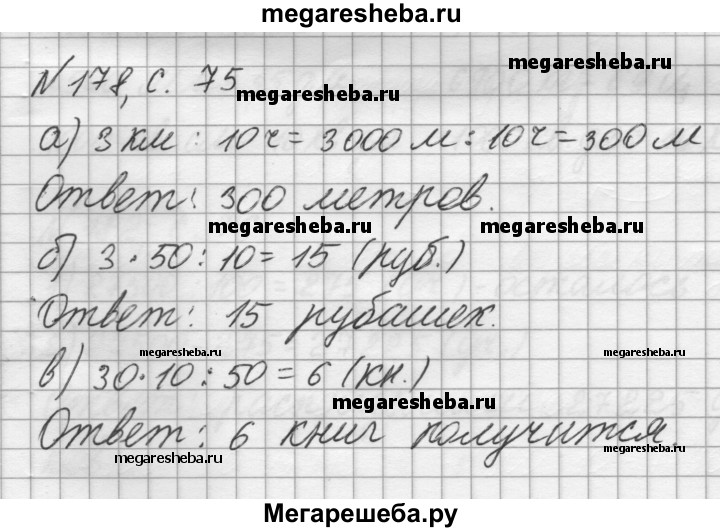 megaresheba.ru
N 178, с. 75
megaresheba.ru
а) 3 км : 10 ч = 3000 м : 10 ч = 300 м
Ответ: 300 метров.
megaresheba.ru
megaresheba.ru
б) 3 · 50 : 10 = 15 (руб.)
Ответ: 15 рубашек.
megaresheba.ru
megaresheba.ru
в) 30 · 10 : 50 = 6 (кн.)
megaresheba.ru
Ответ: 6 книг получится.
megaresheba.ru
megaresheba.ru
Мегарешеба.ру